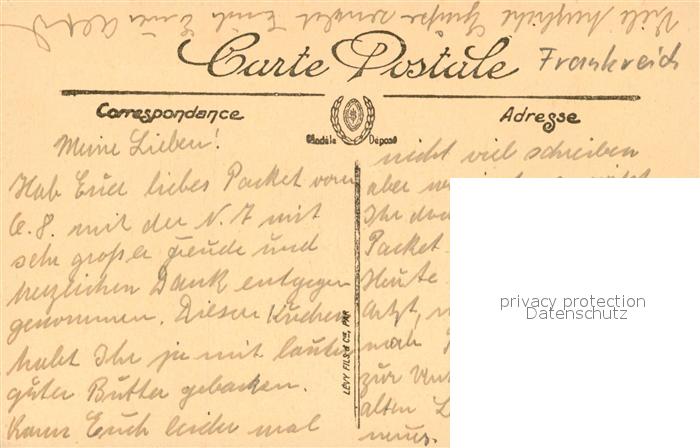 Viele herzliche Grüße sendet Euch Euer
Carte Postale
Frankreich
Correspondance
Adresse
Modèle Déposé
Meine Lieben!
Hab Euer liebes Packet vom
6.8. mit der N. 7 mit
sehr großer Freude und
herzlichen Dank entgegen
genommen. Diesen Kuchen
habt Ihr ja mit lauter
guter Butter gebacken.
Kann Euch leider mal
nicht viel schreiben
aber
Ihr
Packet
Heute
Arzt,
nach
zur
alten
neues.
LÉVY FILS & Cie, PAR
privacy protection
Datenschutz